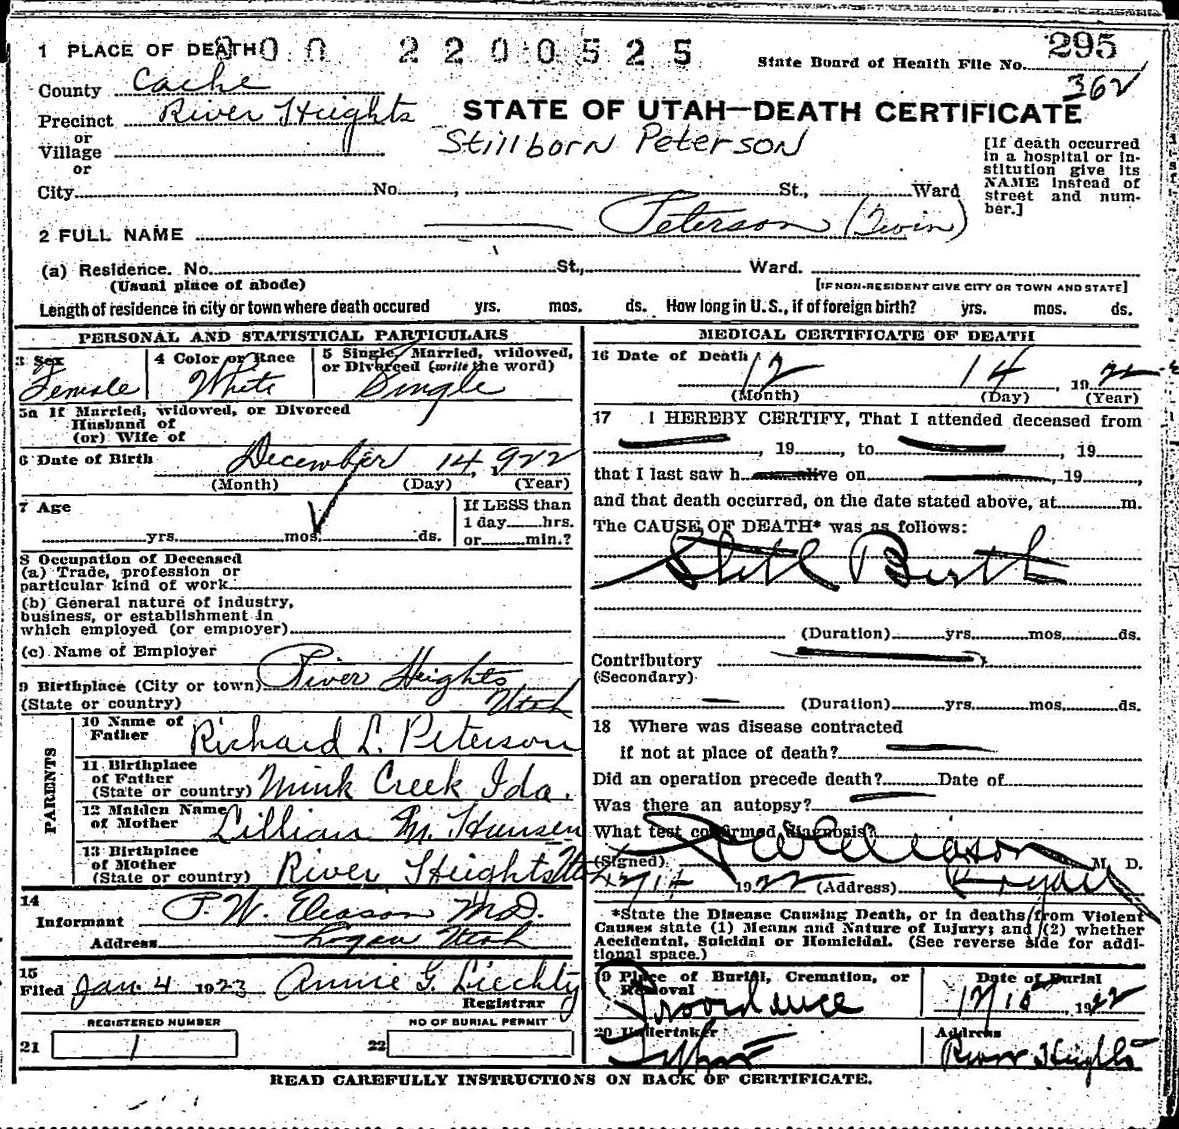 1 PLACE OF DEATH 2200525
State Board of Health File No. 295
362
County Cache
Precinct River Heights
or
Village
or
STATE OF UTAH—DEATH CERTIFICATE
Stillborn Peterson
[If death occurred
in a hospital or in-
stitution give its
NAME instead of
street and num-
ber.]
City No. St., Ward
2 FULL NAME Peterson (Twin)
(a) Residence. No. St., Ward.
(Usual place of abode) [IF NON-RESIDENT GIVE CITY OR TOWN AND STATE]
Length of residence in city or town where death occured yrs. mos. ds. How long in U.S., if of foreign birth? yrs. mos. ds.
PERSONAL AND STATISTICAL PARTICULARS
3 Sex
Female
4 Color or Race
White
5 Single, Married, widowed,
or Divorced (write the word)
Single
5a If Married, widowed, or Divorced
Husband of
(or) Wife of
6 Date of Birth December 14, 1922
(Month) (Day) (Year)
7 Age
yrs. mos. ds.
If LESS than
1 day hrs.
or min.?
8 Occupation of Deceased
(a) Trade, profession or
particular kind of work
(b) General nature of industry,
business, or establishment in
which employed (or employer)
(c) Name of Employer
9 Birthplace (City or town) River Heights
(State or country) Utah
PARENTS
10 Name of
Father Richard L. Peterson
11 Birthplace
of Father
(State or country) Mink Creek Ida.
12 Maiden Name
of Mother Lillian M. Hansen
13 Birthplace
of Mother
(State or country) River Heights Uta
14
Informant P. W. Eliason M.D.
Address Logan Utah
15
Filed Jan. 4 1923 Annie G. Liechty
Registrar
REGISTERED NUMBER
21 1
NO OF BURIAL PERMIT
22
MEDICAL CERTIFICATE OF DEATH
16 Date of Death
12 14, 1922
(Month) (Day) (Year)
17 I HEREBY CERTIFY, That I attended deceased from
, 19 , to , 19
that I last saw h alive on , 19 ,
and that death occurred, on the date stated above, at m.
The CAUSE OF DEATH* was as follows:
Still Birth
(Duration) yrs. mos. ds.
Contributory
(Secondary)
(Duration) yrs. mos. ds.
18 Where was disease contracted
if not at place of death?
Did an operation precede death? Date of
Was there an autopsy?
What test confirmed diagnosis?
(Signed) M. D.
12/14 1922 (Address)
*State the Disease Causing Death, or in deaths from Violent
Causes state (1) Means and Nature of Injury; and (2) whether
Accidental, Suicidal or Homicidal. (See reverse side for addi-
tional space.)
19 Place of Burial, Cremation, or
Removal
Providence
Date of Burial
1922
20 Undertaker
Address
River Heights
READ CAREFULLY INSTRUCTIONS ON BACK OF CERTIFICATE.